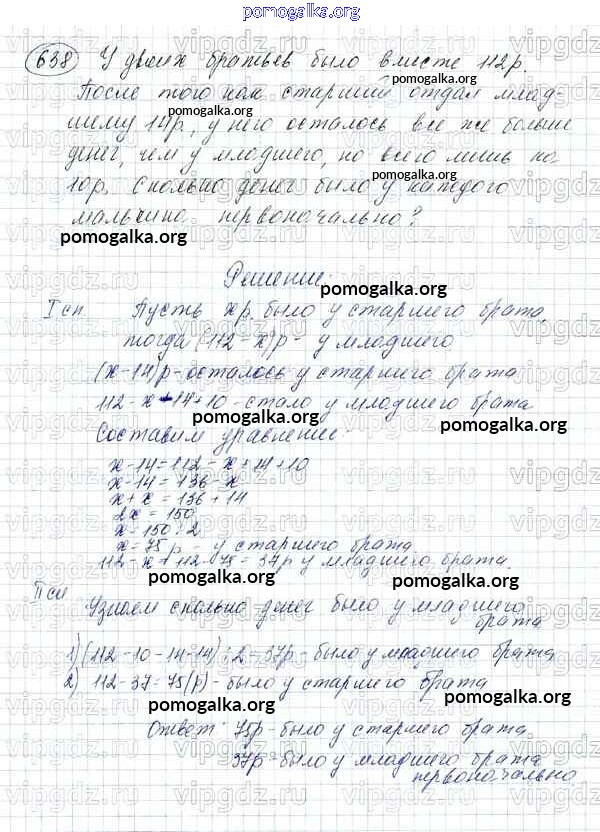 pomogalka.org
638 У двоих братьев было вместе 112р.
После того как старший отдал млад-
шему 14р, у него осталось все же больше
денег, чем у младшего, но всего лишь на
10р. Сколько денег было у каждого
мальчика первоначально?
pomogalka.org
pomogalka.org
Решение:
pomogalka.org
I сп. Пусть x р. было у старшего брата,
тогда (112-x)р- у младшего
pomogalka.org
(x-14)р-осталось у старшего брата
112-x+14+10-стало у младшего брата
pomogalka.org
pomogalka.org
Составим уравнение:
x-14=112-x+14+10
x-14=136-x
x+x=136+14
2x=150
x=150:2
x=75р у старшего брата
112-x=112-75=37р у младшего брата.
pomogalka.org
pomogalka.org
II сп Узнаем сколько денег было у младшего
брата
1)(112-10-14-14):2=37р-было у младшего брата
2) 112-37=75(р)-было у старшего брата
pomogalka.org
pomogalka.org
Ответ: 75р-было у старшего брата
37р-было у младшего брата
первоначально
pomogalka.org